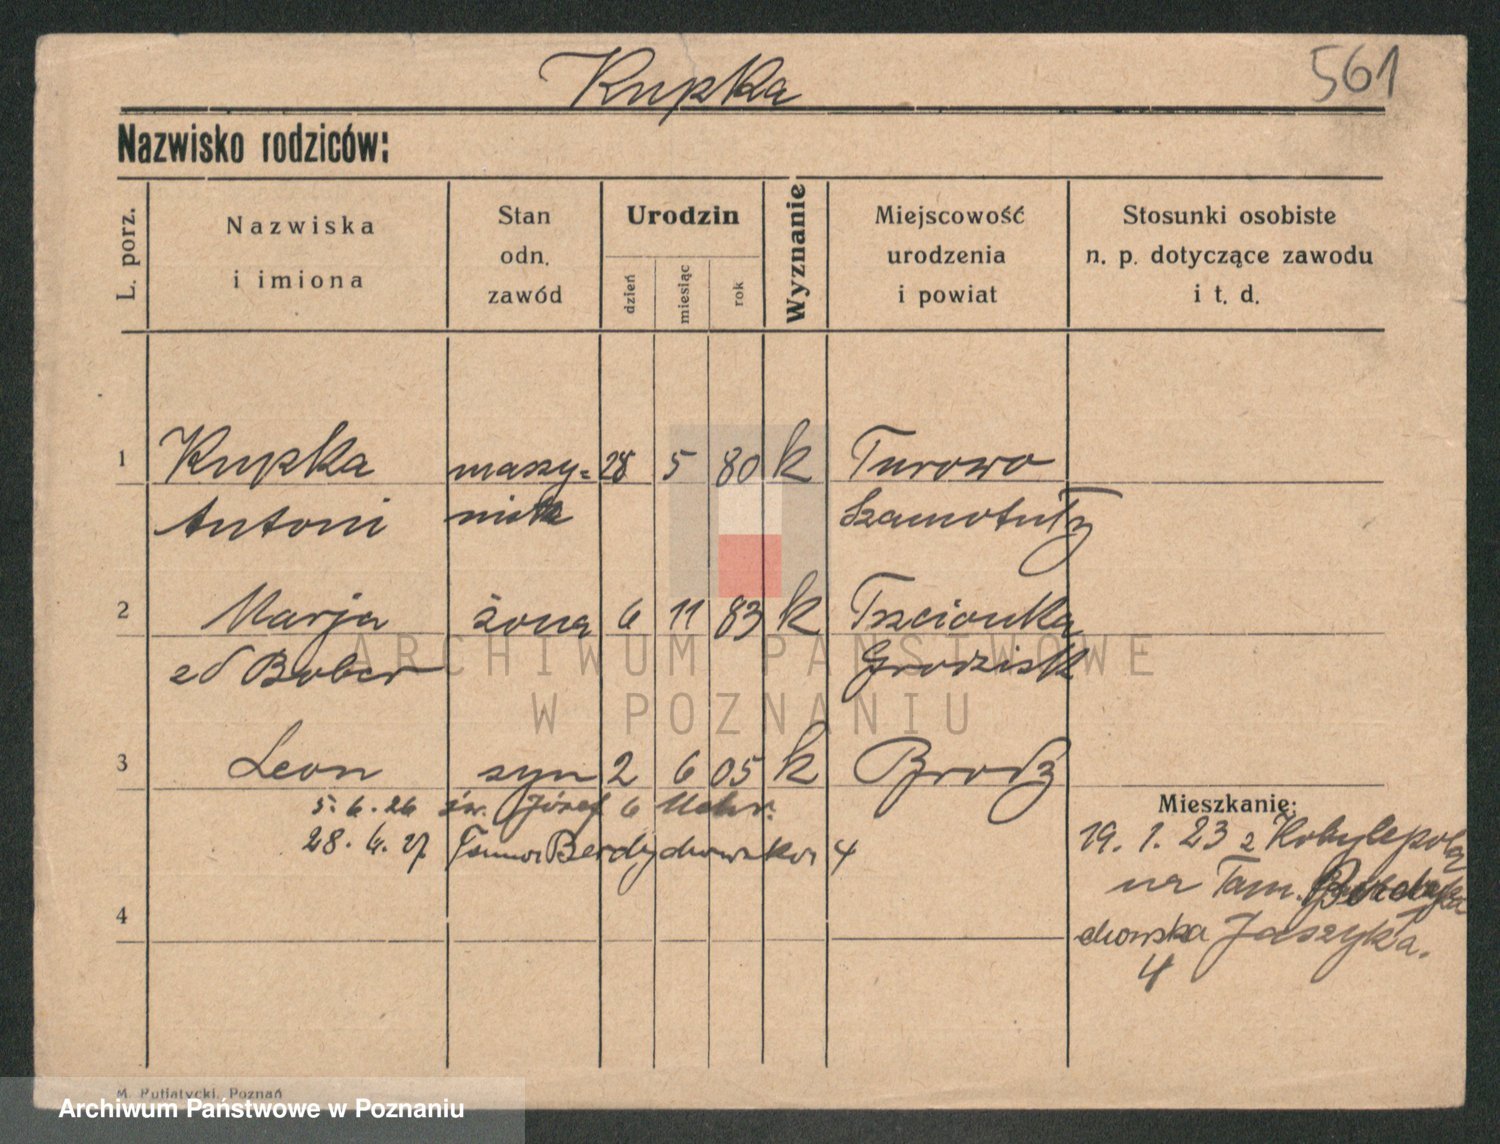 Kupka
561
Nazwisko rodziców:
L. porz.
Nazwiska
i imiona
Stan
odn.
zawód
Urodzin
dzień
miesiąc
rok
Wyznanie
Miejscowość
urodzenia
i powiat
Stosunki osobiste
n. p. dotyczące zawodu
i t. d.
1 Kupka maszy= 28 5 80 k Turowo
Antoni nista Szamotuły
2 Marja żona 6 11 83 k Trzcionka
zd Bober Grodzisk
3 Leon syn 2 6 05 k Brody
5. 6. 26 św. Józef 6
28. 4. 27 Berdychowska 4
Mieszkanie:
19. 1. 23 z Kobylepola
na Tam.
chowska Jaszyka.
4
4
ARCHIWUM PAŃSTWOWE
W POZNANIU
M. Putiatycki, Poznań
Archiwum Państwowe w Poznaniu